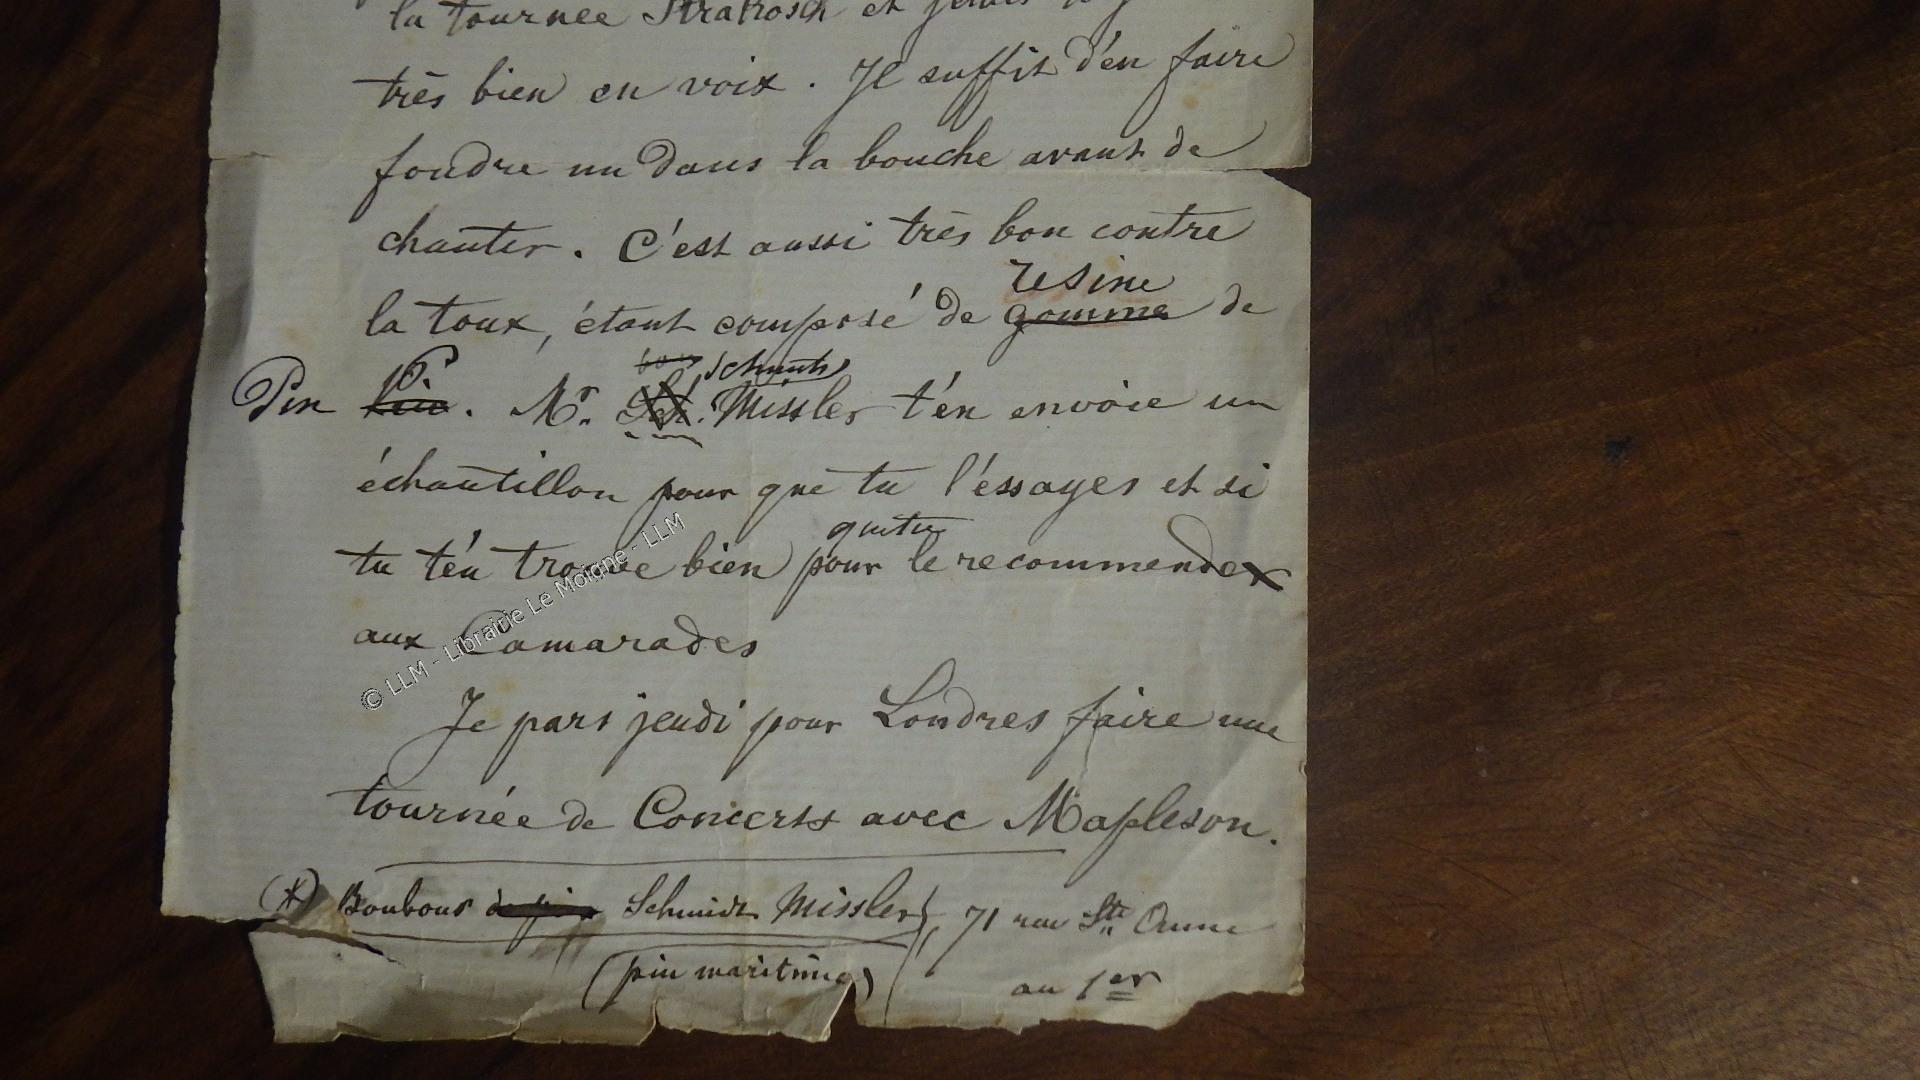 la tournée Strakosch et
très bien en voix. Il suffit d'én faire
foudre un dans la bouche avant de
chanter. C'est aussi très bon contre
resine
la toux, étant composé de gomme de
Pin pin. Mr. Missler t'én envoie un
échantillon pour que tu l'éssayes et si
tu t'én trouve bien pour le recommender
aux Camarades
Je pars jeudi pour Londres faire une
tournée de Concerts avec Mapleson.
(*) Bonbons Schmidt Missler, 71 rue Ste Anne
(pin maritime) au 1er
© LLM - Librairie Le Moigne - LLM